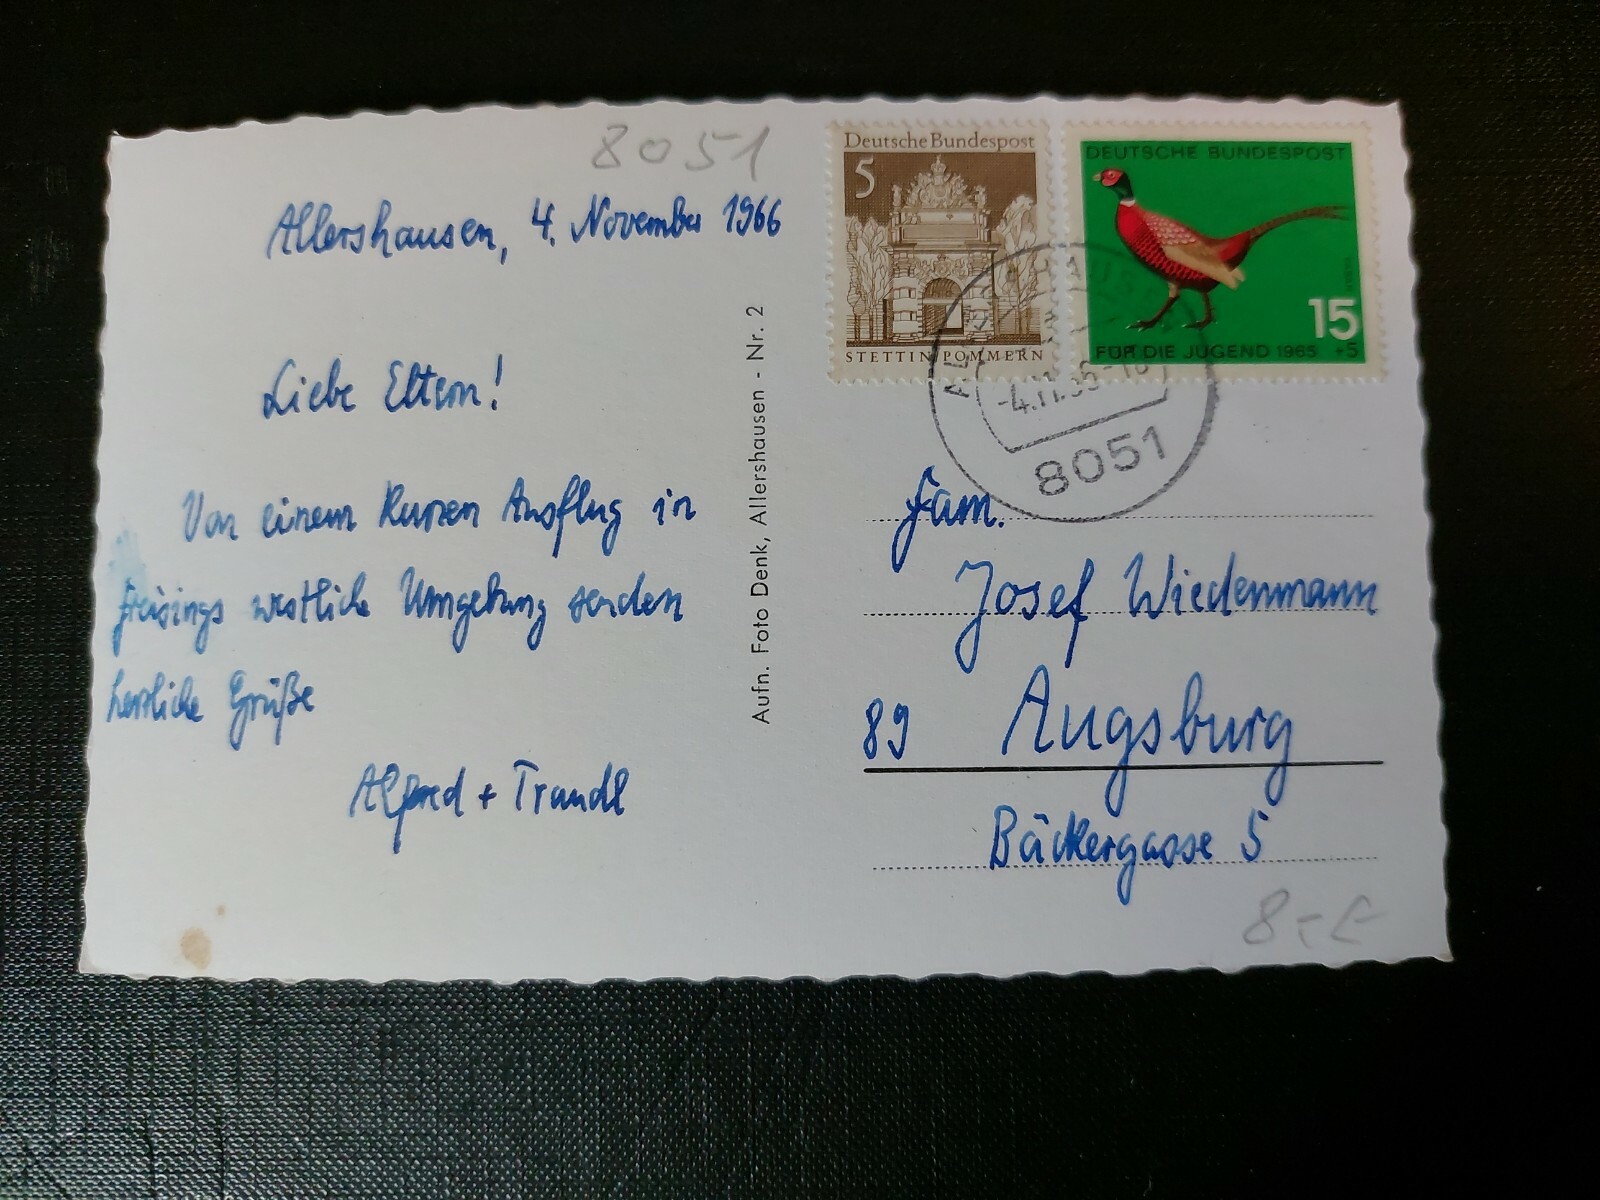 8051
Allershausen, 4. November 1966
Liebe Eltern!
Von einem kurzen Ausflug in
Freisings westliche Umgebung senden
herzliche Grüße
Alfred + Traudl
Aufn. Foto Denk, Allershausen - Nr. 2
Deutsche Bundespost
5
STETTIN POMMERN
DEUTSCHE BUNDESPOST
15
FÜR DIE JUGEND 1965 +5
8051
Fam.
Josef Wiedenmann
89 Augsburg
Bäckergasse 5